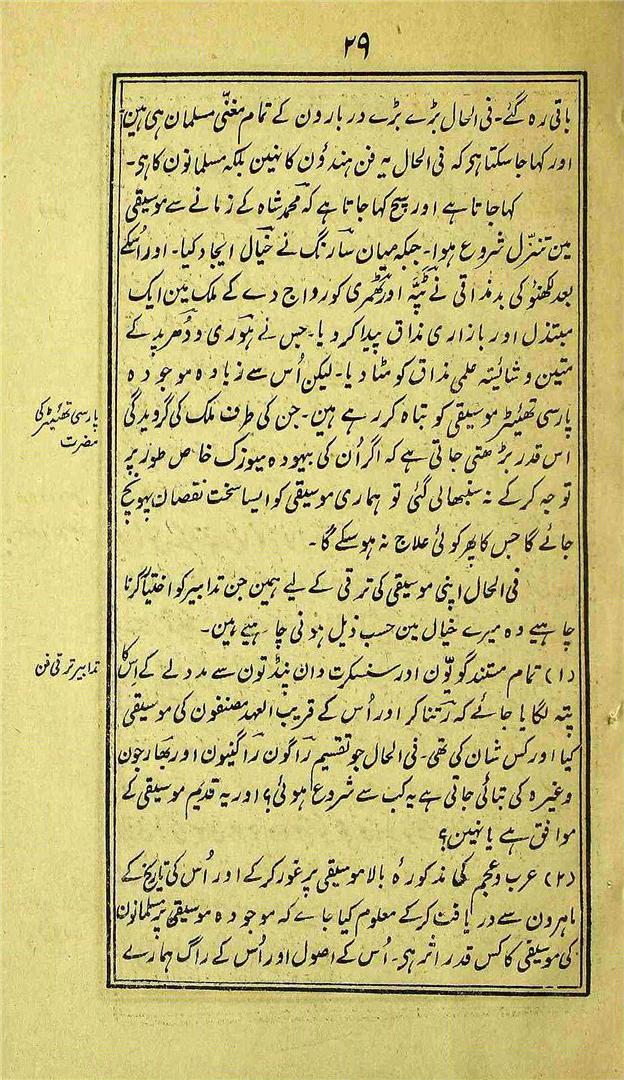 ۲۹
باقی رہ گئے۔ فی الحال بڑے بڑے دربارون کے تمام مغنّی مسلمان ہی ہین
اور کہا جا سکتا ہی کہ فی الحال یہ فن ہندؤن کا نہین بلکہ مسلمانون کا ہی۔
کہا جاتا ہے اور سچ کہا جاتا ہے کہ محمد شاہ کے زمانے سے موسیقی
مین تنزّل شروع ہوا۔ جبکہ میان سارنگ نے خیال ایجاد کیا۔ اور اسکے
بعد لکھنؤ کی بدمذاقی نے ٹپّہ اور ٹھمری کو رواج دے کے ملک مین ایک
مبتذل اور بازاری مذاق پیدا کر دیا۔ جس نے ہوری و دُھرپد کے
متین و شائیتہ علمی مذاق کو مٹا دیا۔ لیکن اُس سے زیادہ موجودہ
پارسی تھئیٹر موسیقی کو تباہ کر رہے ہین۔ جن کی طرف ملک کی گرویدگی
اس قدر بڑھتی جاتی ہے کہ اگر اُن کی بیہودہ میوزک خاص طور پر
توجہ کرکے نہ سنبھالی گئی تو ہماری موسیقی کو ایسا سخت نقصان پہونچ
جائے گا جس کا پھر کوئی علاج نہ ہو سکے گا۔
فی الحال اپنی موسیقی کی ترقی کے لیے ہمین جن تدابیر کو اختیار کرنا
چاہیے وہ میرے خیال مین حسب ذیل ہونی چاہیے ہین۔
(۱) تمام مستند گویّون اور سنسکرت دان پنڈتون سے مدد لے کے اِس کا
پتہ لگایا جائے کہ رتنا کر اور اُس کے قریب العہد مصنفون کی موسیقی
کیا اور کس شان کی تھی۔ فی الحال جو تقسیم راگون راگنیون اور بھارجون
وغیرہ کی بتائی جاتی ہے یہ کب سے شروع ہوئی؟ اور یہ قدیم موسیقی کے
موافق ہے یا نہین؟
(۲) عرب و عجم کی مذکورۂ بالا موسیقی پر غور کرکے اور اُس کی تاریخ کے
ماہرون سے دریافت کرکے معلوم کیا جاے کہ موجودہ موسیقی پر مسلمانون
کی موسیقی کا کس قدر اثر ہی۔ اُس کے اصول اور اُس کے راگ ہمارے
پارسی تھئیٹر کی
مضرت
تدابیر ترقی فن